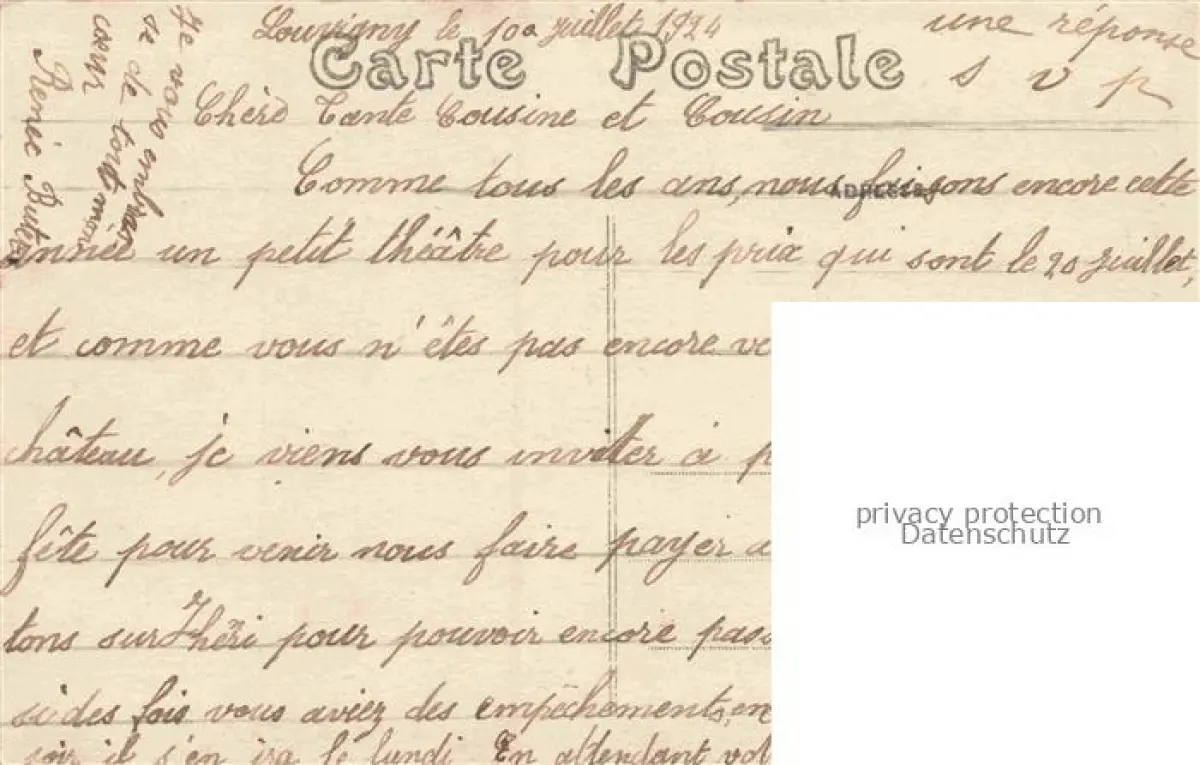 Louvigny le 10 Juillet 1924
une réponse
s v p
Carte Postale
Chèrs Tante Cousine et Cousin
ADRESSE
Comme tous les ans, nous faisons encore cette
année un petit théâtre pour les prix qui sont le 20 juillet,
et comme vous n'êtes pas encore
château, je viens vous inviter à
fête pour venir nous faire payer
tons sur pour pouvoir encore
si des fois vous aviez des empêchements, en
soir il s'en ira le lundi. En attendant
Je vous embras
se de tout mon
coeur
Renée
privacy protection
Datenschutz